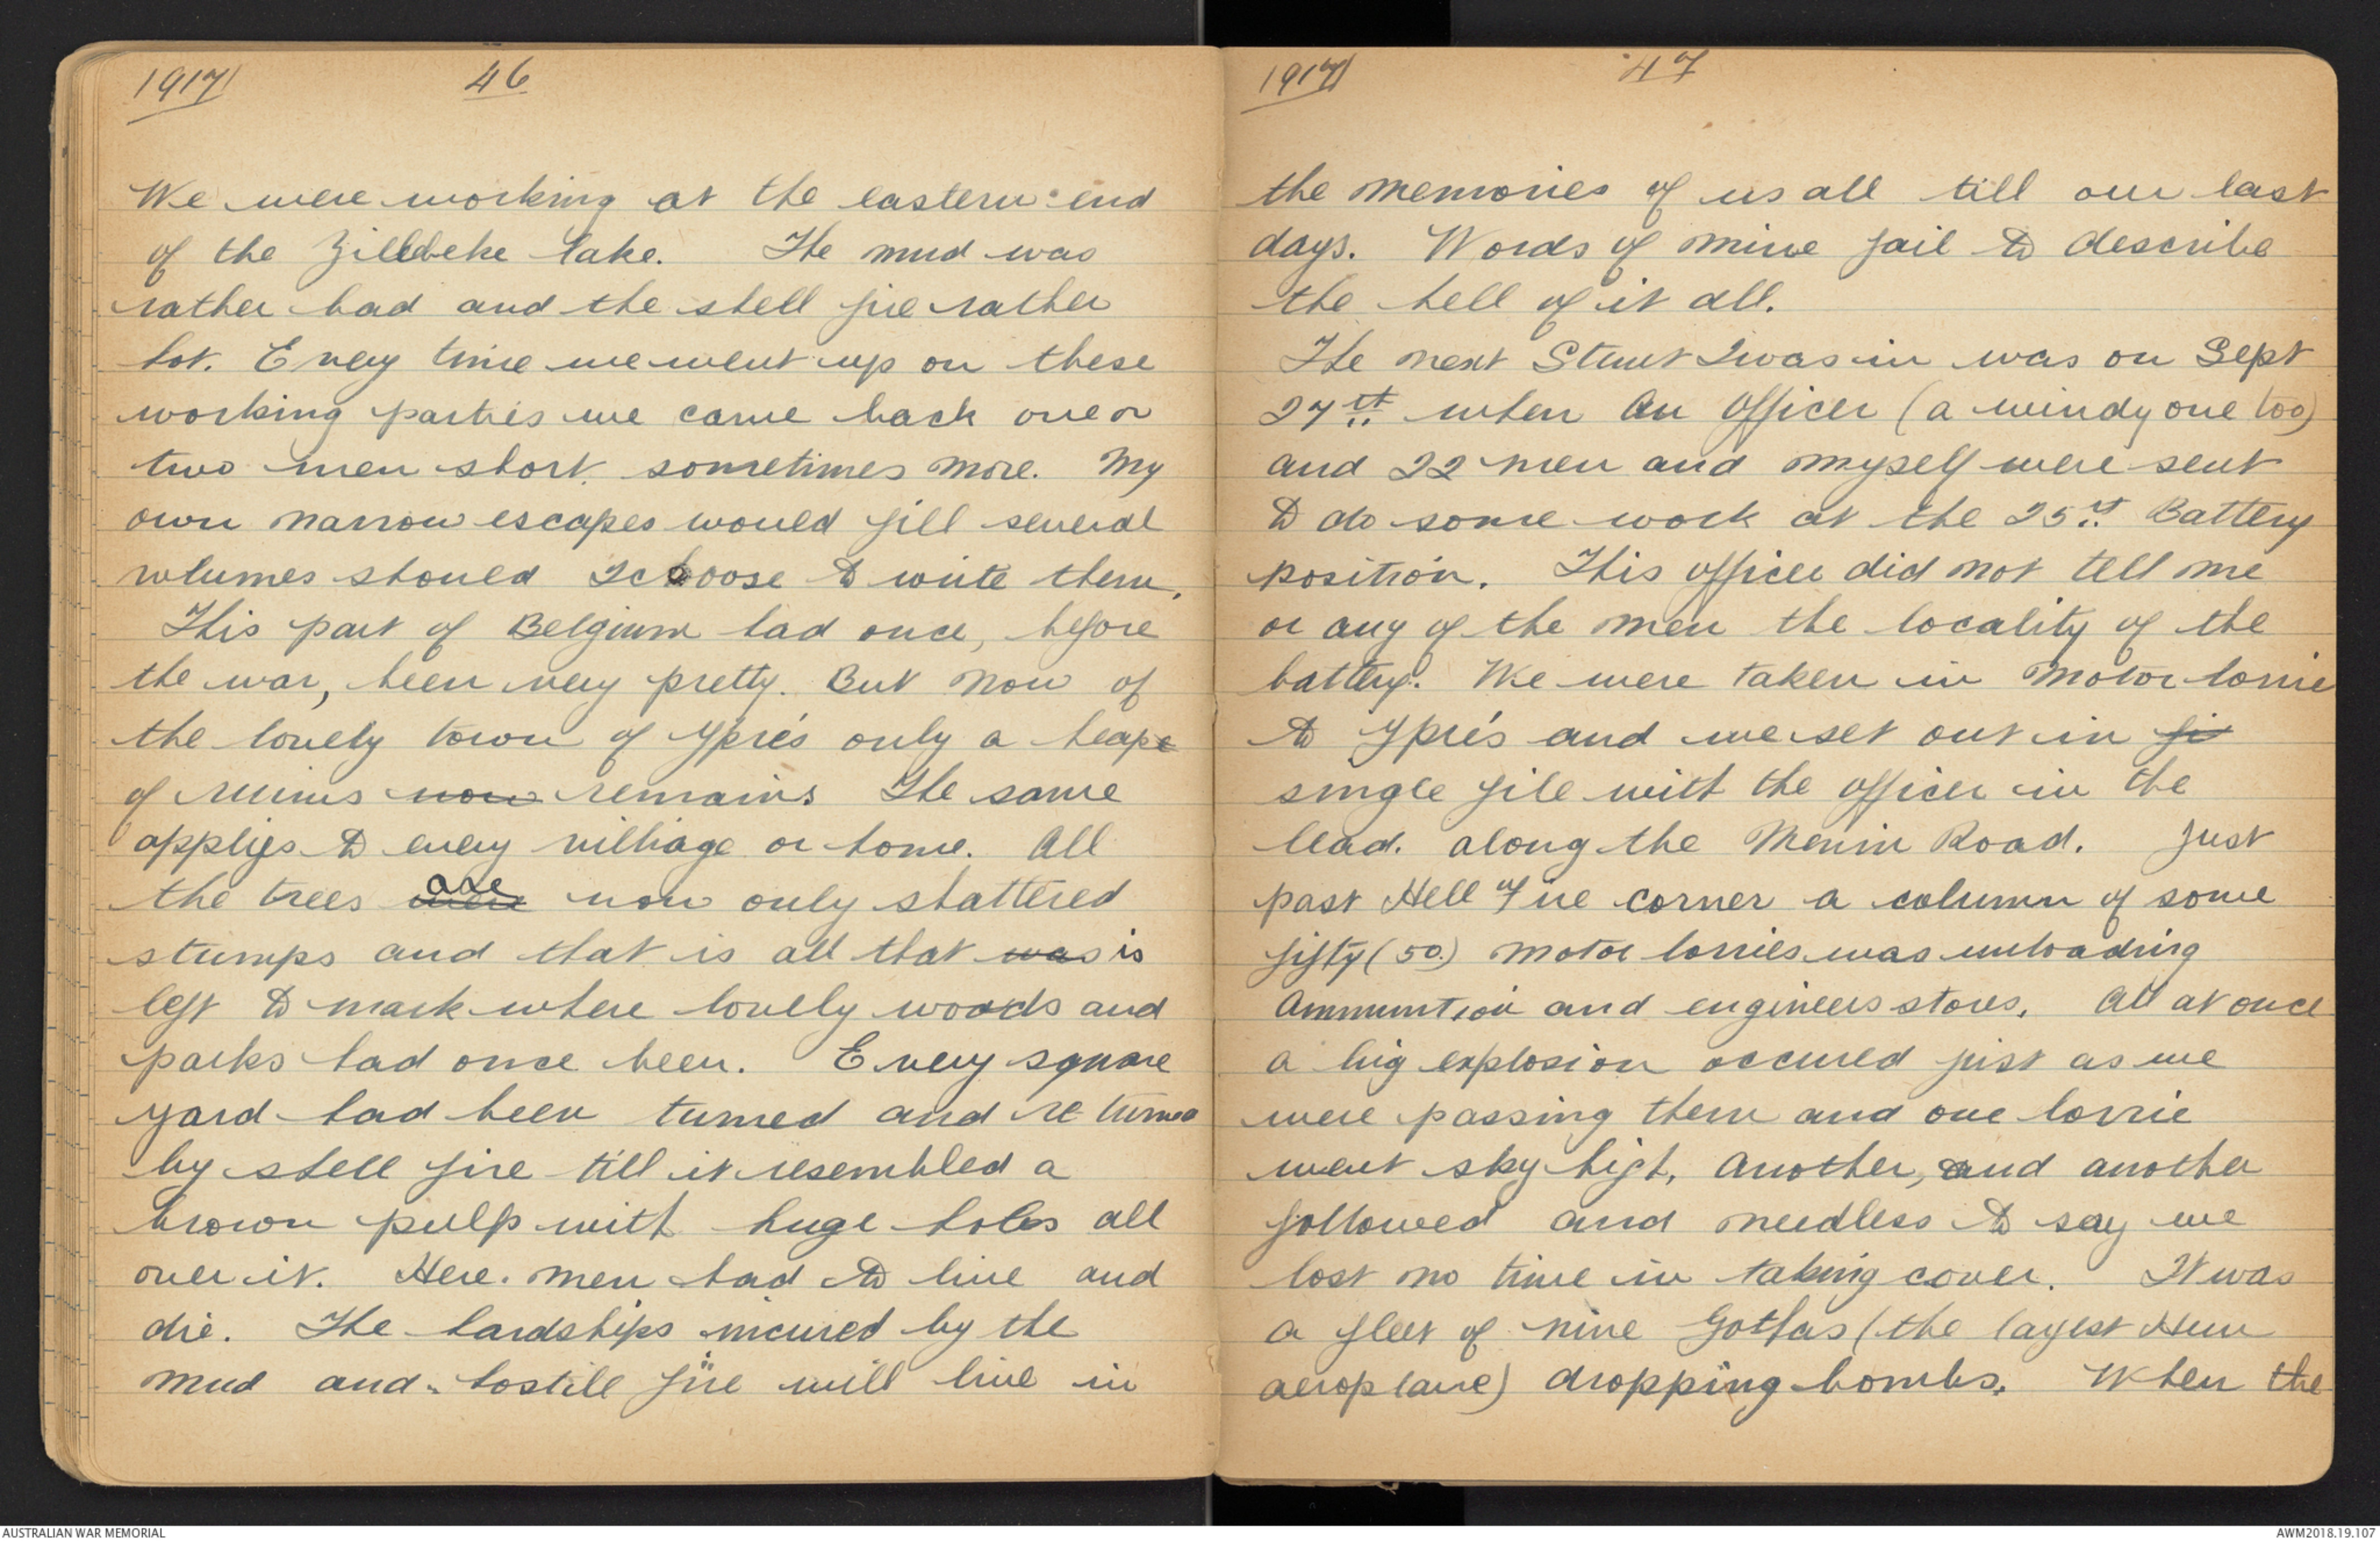 1917
46
We were working at the eastern end
of the Zillebeke lake. The mud was
rather bad and the shell fire rather
hot. Every time we went up on these
working parties we came back one or
two men short, sometimes more. My
own narrow escapes would fill several
volumes should I choose to write them.
This part of Belgium had once, before
the war, been very pretty. But now of
the lovely town of Yprés only a heape
of ruins now remains The same
applies to every villiage or home. All
the trees were are now only shattered
stumps and that is all that was is
left to mark where lovely woods and
parks had once been. Every square
yard had been turned and re turned
by shell fire till it resembled a
brown pulp with huge holes all
over it. Here men had to live and
die. The hardships incured by the
mud and hostile fire will live in
1917
47
the memories of us all till our last
days. Words of mine fail to describe
the hell of it all.
The next Stunt I was in was on Sept
27th when an Officer (a windy one too)
and 22 men and myself were sent
to do some work at the 25th Battery
position. This officer did not tell me
or any of the men the locality of the
battery. We were taken in motor lorrie
to Yprés and we set out in fi
single file with the officer in the
lead. along the Menin Road. Just
past Hell Fire corner a column of some
fifty (50) motor lorries was unloading
Ammuntion and engineers stores. All at once
a big explosion occured just as we
were passing them and one lorrie
went sky high, Another, and another
followed and needless to say we
lost no time in taking cover. It was
a fleet of nine Gothas (the largest Hun
aeroplane) dropping bombs. When the
AUSTRALIAN WAR MEMORIAL
AWM2018.19.107